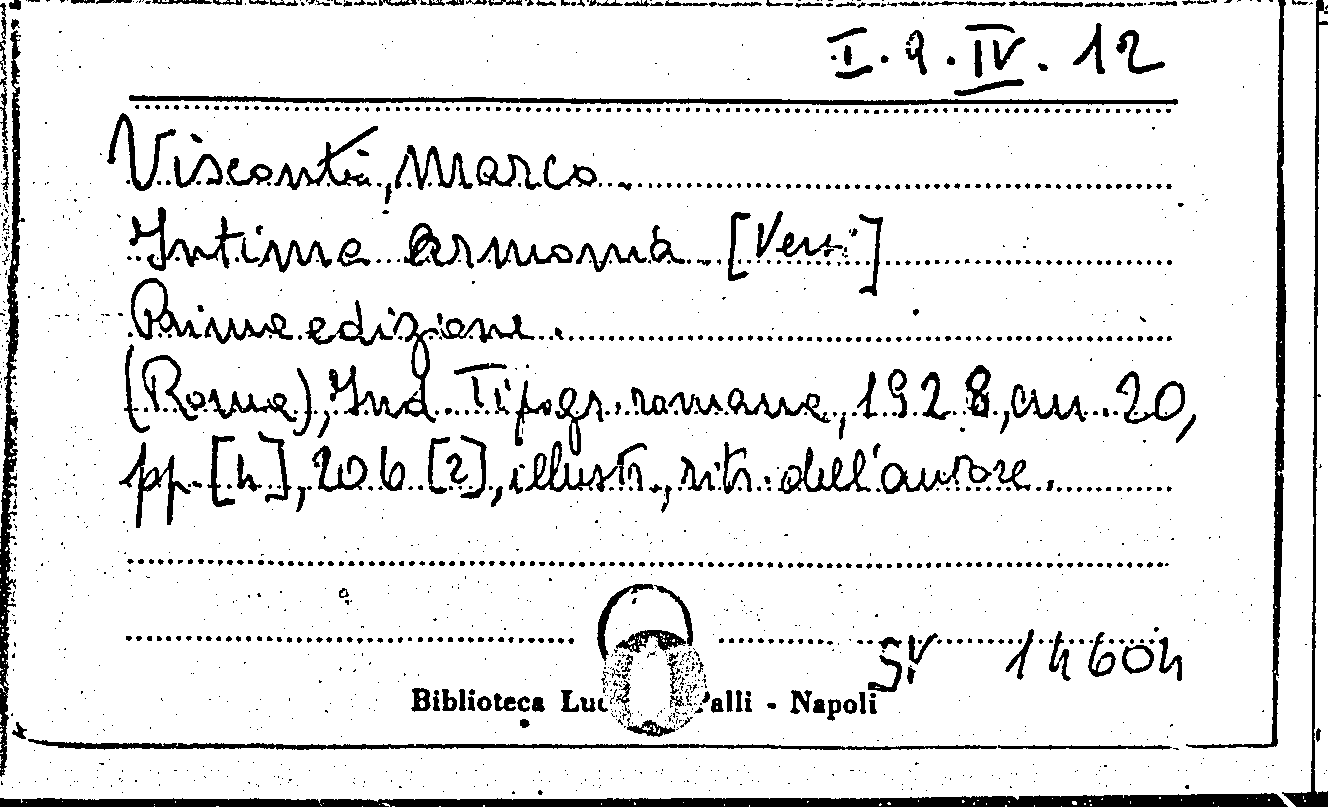 I.9.IV.12
Visconti, Marco.
Intima armonia. [Versi]
Prima edizione.
(Roma), Ind. Tipogr. romana, 1928, cm. 20,
pp. [4], 206 [2], illustr., ritr. dell'autore.
SV 14604
Biblioteca Luc Palli - Napoli